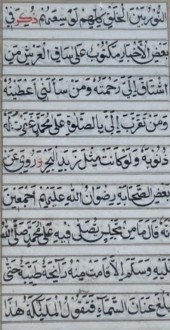 النور بين الخلق كلهم لوسعهم ذكر في
بعض الأخبار مكتوب على ساق العرش من
اشتاق إلى رحمته ومن سألني أعطيته
ومن تقرب إلي بالصلاة على محمد غفرت له
ذنوبه ولو كانت مثل زبد البحر وروي عن
بعض الصحابة رضوان الله عليهم أجمعين
أنه قال ما من مجلس يصلى فيه على محمد صلى الله
عليه وسلم إلا قامت منه رائحة طيبة حتى
تبلغ عنان السماء فتقول الملائكة هذا